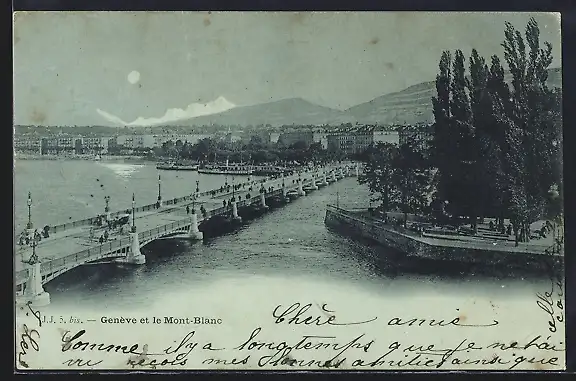 J.J. 5. bis. — Genève et le Mont-Blanc
Chère amie
Comme il y a longtemps que je n'ai
vu reçois mes bonnes amitiés ainsi que
celle